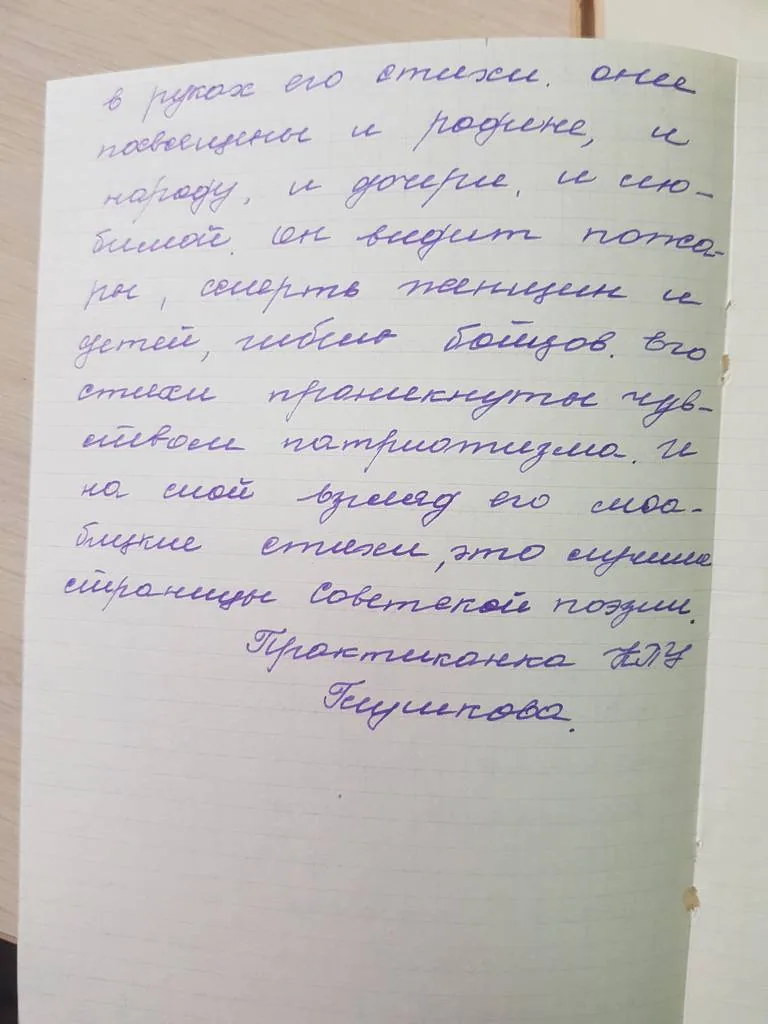 в руках его стихи. они
посвещены и родине, и
народу, и дочери, и лю-
бимой. он видит пожа-
ры, смерть женщин и
детей, гибель бойцов. Его
стихи проникнуты чув-
ством патриотизма. И
на мой взгляд его моа-
бицкие стихи, это лучшие
страницы советской поэзии.
Практиканка НПУ
Глушкова.